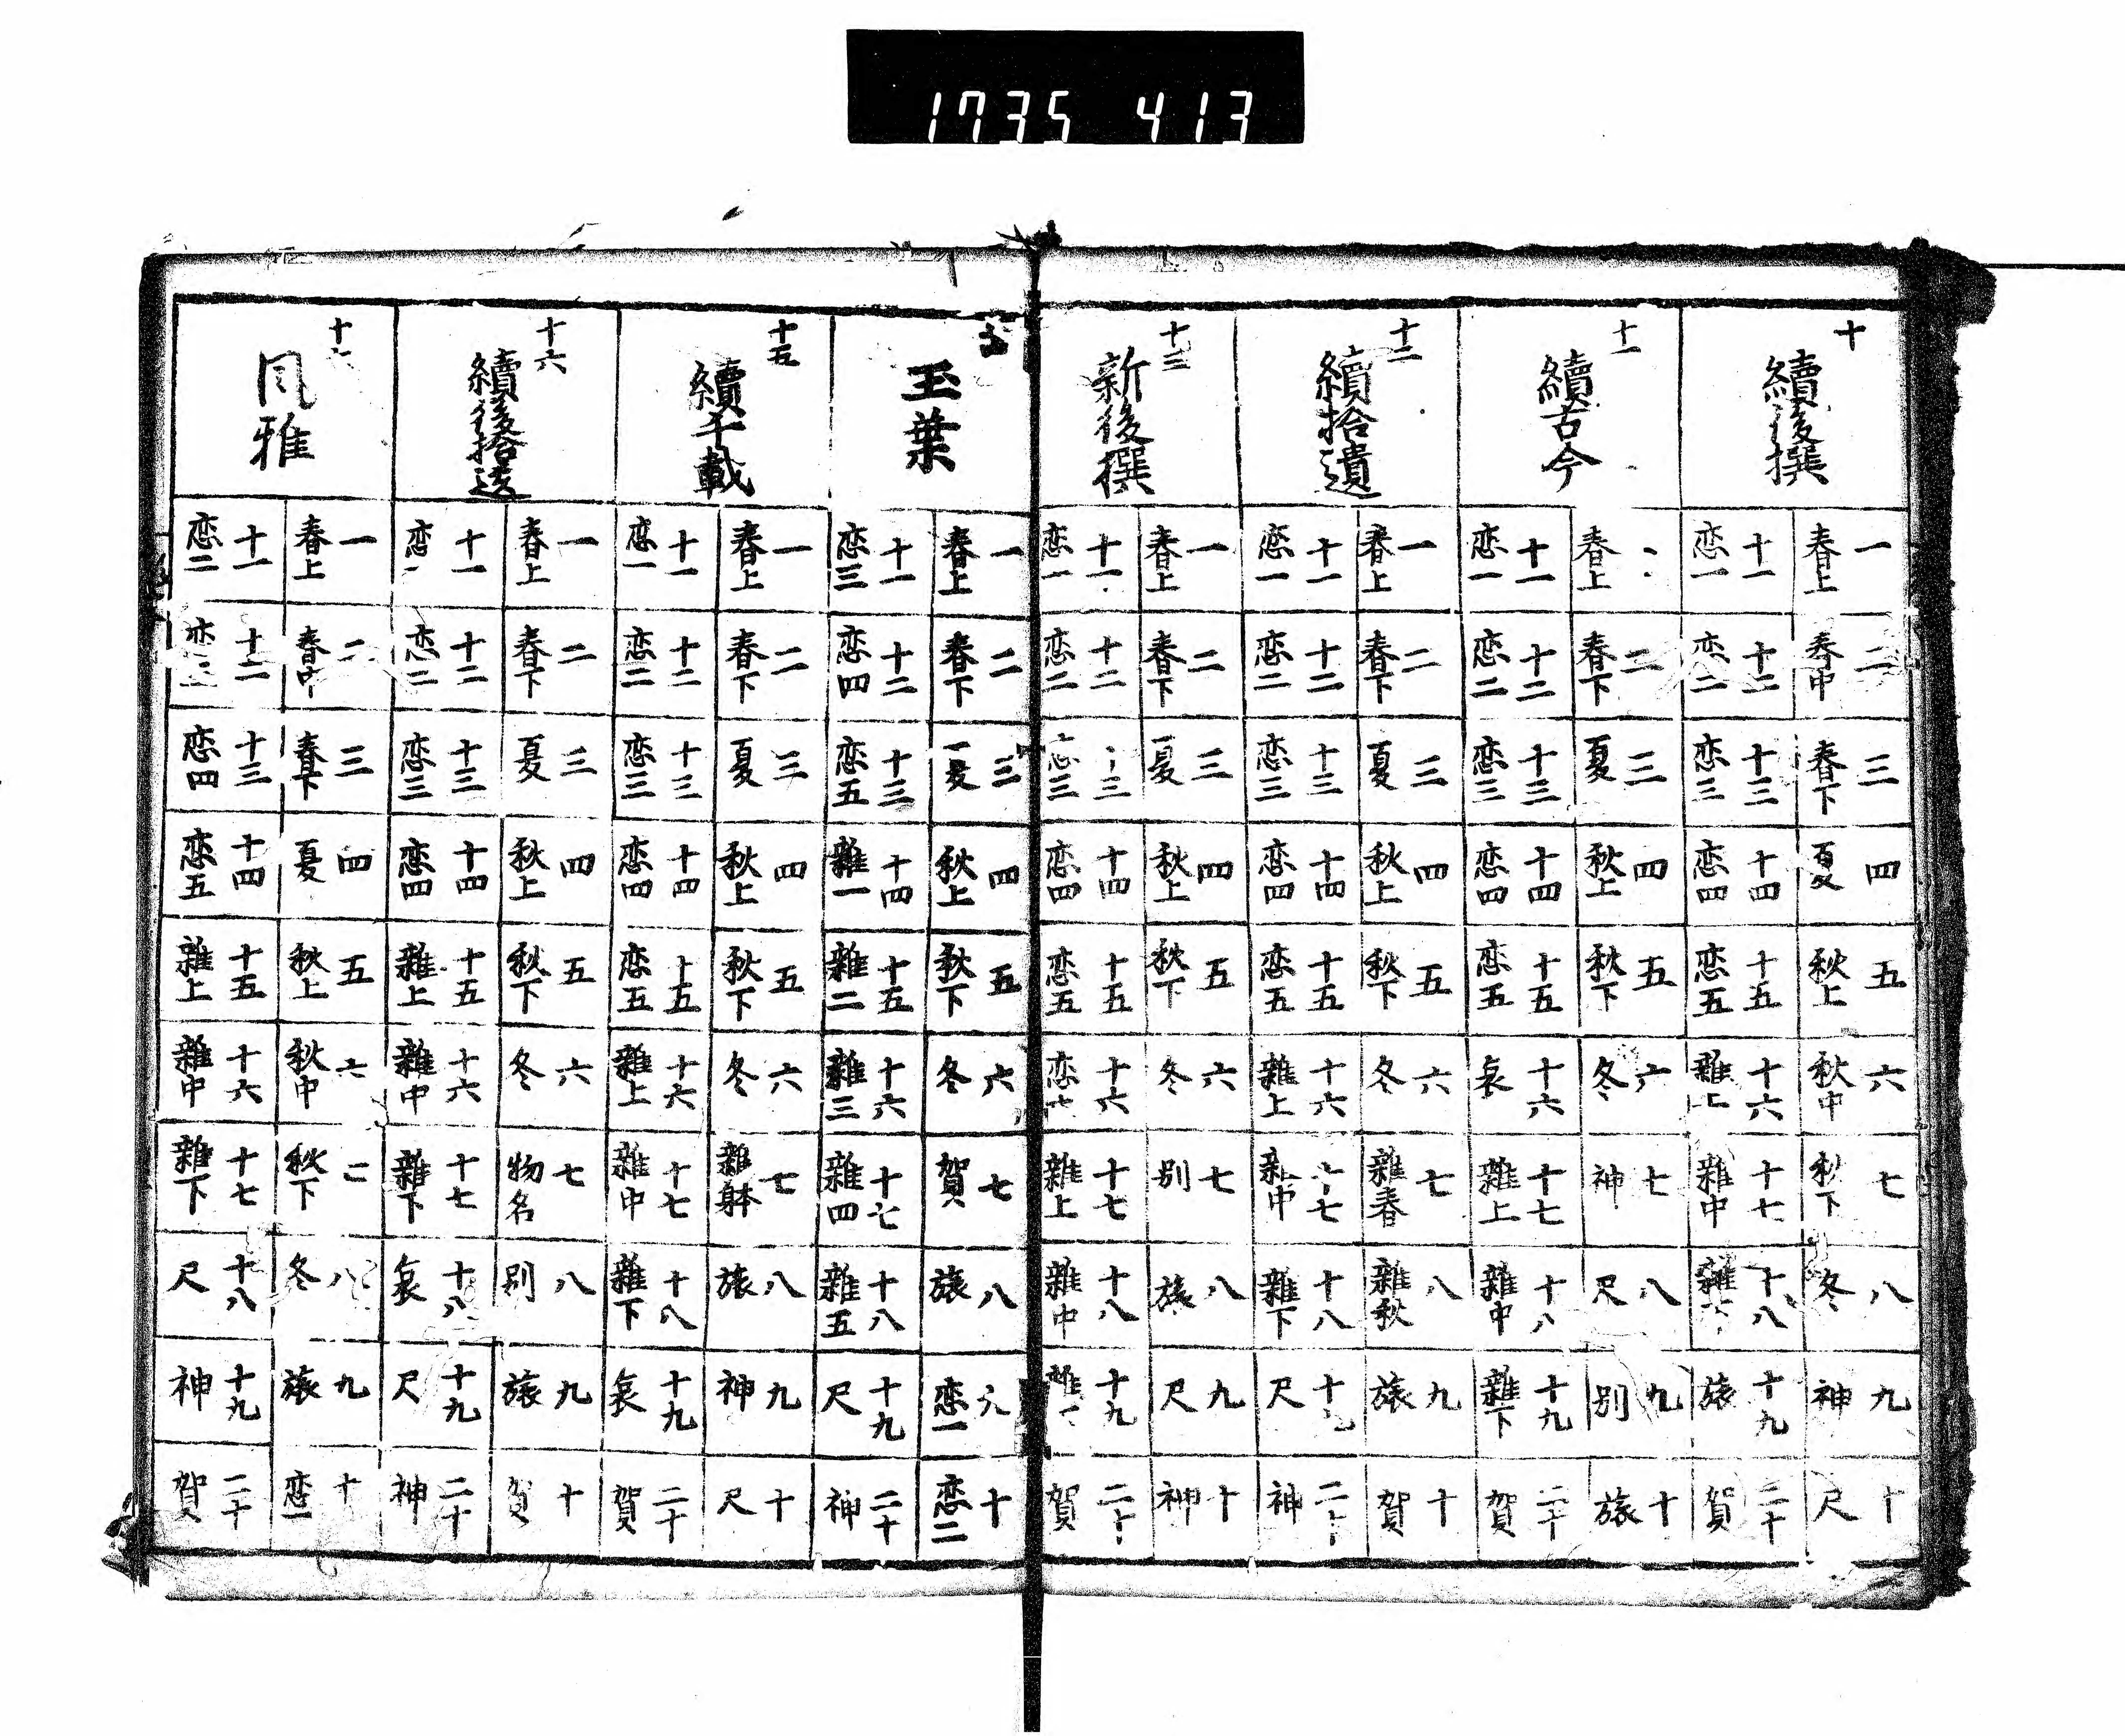 1735 413
十
續後撰
一 春上
二 春中
三 春下
四 夏
五 秋上
六 秋中
七 秋下
八 冬
九 神
十 尺
十一 恋一
十二 恋二
十三 恋三
十四 恋四
十五 恋五
十六 雜上
十七 雜中
十八 雜
十九 旅
二十 賀
十一
續古今
春上
二 春下
三 夏
四 秋上
五 秋下
六 冬
七 神
八 尺
九 别
十 旅
十一 恋一
十二 恋二
十三 恋三
十四 恋四
十五 恋五
十六 哀
十七 雜上
十八 雜中
十九 雜下
二十 賀
十二
續拾遺
一 春上
二 春下
三 夏
四 秋上
五 秋下
六 冬
七 雜春
八 雜秋
九 旅
十 賀
十一 恋一
十二 恋二
十三 恋三
十四 恋四
十五 恋五
十六 雜上
十七 雜中
十八 雜下
十九 尺
二十 神
十三
新後撰
一 春上
二 春下
三 夏
四 秋上
五 秋下
六 冬
七 别
八 旅
九 尺
十 神
十一 恋一
十二 恋二
十三 恋三
十四 恋四
十五 恋五
十六 恋
十七 雜上
十八 雜中
十九 雜
二十 賀
玉葉
一 春上
二 春下
三 夏
四 秋上
五 秋下
六 冬
七 賀
八 旅
九 恋一
十 恋二
十一 恋三
十二 恋四
十三 恋五
十四 雜一
十五 雜二
十六 雜三
十七 雜四
十八 雜五
十九 尺
二十 神
十五
續千載
一 春上
二 春下
三 夏
四 秋上
五 秋下
六 冬
七 雜躰
八 旅
九 神
十 尺
十一 恋一
十二 恋二
十三 恋三
十四 恋四
十五 恋五
十六 雜上
十七 雜中
十八 雜下
十九 哀
二十 賀
十六
續後拾遺
一 春上
二 春下
三 夏
四 秋上
五 秋下
六 冬
七 物名
八 别
九 旅
十 賀
十一 恋一
十二 恋二
十三 恋三
十四 恋四
十五 雜上
十六 雜中
十七 雜下
十八 哀
十九 尺
二十 神
十
風雅
一 春上
二 春中
三 春下
四 夏
五 秋上
六 秋中
秋下
八 冬
九 旅
十 恋一
十一 恋二
十二 恋
十三 恋四
十四 恋五
十五 雜上
十六 雜中
十七 雜下
十八 尺
十九 神
二十 賀